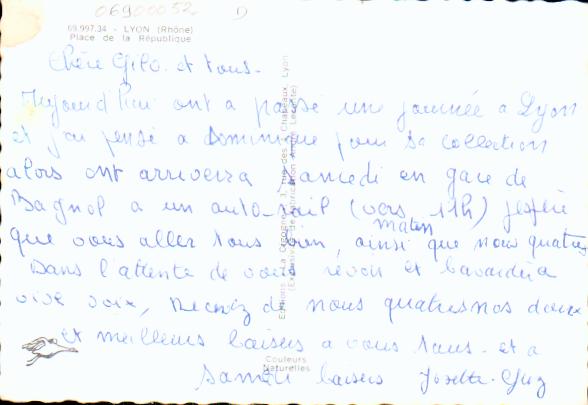 06900052
D
69.997.34 - LYON (Rhône)
Place de la République
Chère Gilo. et tous.
Aujourd'hui ont a passé une journée a Lyon
et j'ai pensé a Dominique pour sa collection
alors ont arrivera Samedi en gare de
Bagnol a un auto-rail (vers 11h) j'espère
matin
que vous aller tous bien, ainsi que nous quatres
Dans l'attente de vous revoir et bavarder a
vive voix, Recevez de nous quatres nos doux
et meilleurs baisers a vous tous. et a
Samedi baisers Josette. Guy
Editions "La Cigogne", 3, Rue des Chateaux, Lyon
Couleurs
Naturelles